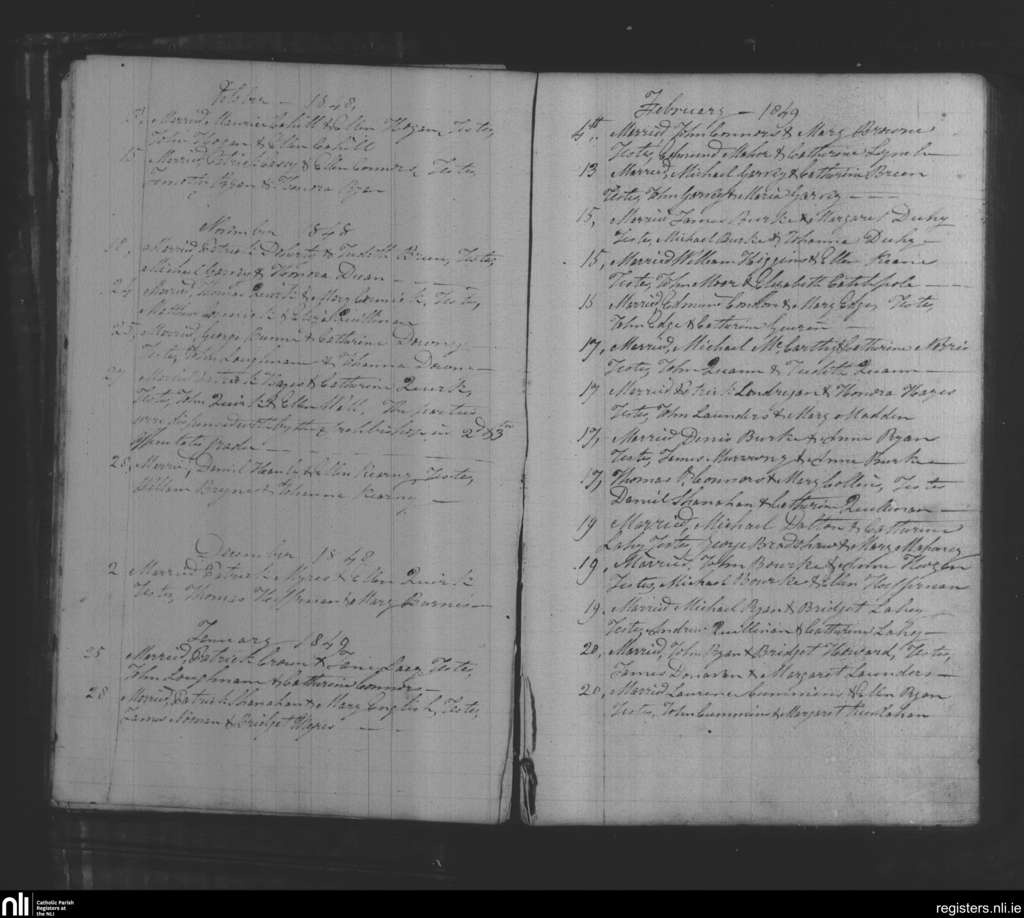 October — 1848,
Married, Maurice Cahill & Ellen Hogan, Testes,
John Hogan & Ellen Cahill
15 Married Patrick & Ellen Connors, Testes,
Timothy Ryan & Honora Ryan
November 1848
Married Patrick Doherty & Judith Breen, Testes,
Michael & Honora Duan
Married, Thomas Quirk & Mary Cormick, Testes,
Mathew & Eliza Quillinan
25, Married, George & Catherine Downey
Testes, John Loughnan & Johanna
27 Married Patrick Hayes & Catherine Quirk,
Testes, John Quirk & Ellen Hall. The parties
were dispensed with by the Archbishop in 2d & 3
28, Married, Daniel & Ellen Kearny, Testes,
William & Johanna Kearny —
December 1848
2 Married Patrick Myres & Ellen Quirk
Testes, Thomas Heffernan & Mary
January — 1849
25 Married, Patrick & Jane, Testes,
John Loughnan & Catherine Connors —
28 Married, Patrick Shanahan & Mary English, Testes,
James & Bridget
February — 1849
4th, Married, John Connors & Mary Browne
Testes, Edmund Maher & Catherine Lynch —
13 Married, Michael Garvey & Catherine Breen
Testes, John Garvey & Maria Garvey — — —
15, Married James Burke & Margaret Duhy
Testes, Michael Burke & Johanna Duhy —
15, Married William Higgins & Ellen Keane
Testes, John Moor & Elizabeth —
Married Edmund Condon & Mary Edge, Testes,
John Edge & Catherine —
17, Married, Michael McCarthy & Catherine Norris
Testes, John Quann & Judith Quann —
17 Married Patrick Londregan & Honora Hayes
Testes, John Launders & Mary Madden
17, Married Denis Burke & Anne Ryan
Testes, James & Anne Burke —
17, Thomas O Connors & Mary Collins, Testes
Daniel Shanahan & Catherine Quillinan —
19 Married, Michael Dalton & Catherine
Lahy Testes, George Bradshaw & Mary Mahony
19, Married, John Bourke & Anne Hogan
Testes, Michael Bourke & Ellen Heffernan
19, Married Michael Ryan & Bridget Lahey
Testes, Andrew Quillinan & Catherine Lahey —
20, Married, John Ryan & Bridget Howard, Testes,
James Donavan & Margaret Launders —
20, Married Laurence Cummins & Ellen Ryan
Testes, John Cummins & Margaret
nli
Catholic Parish
Registers at
the NLI
registers.nli.ie